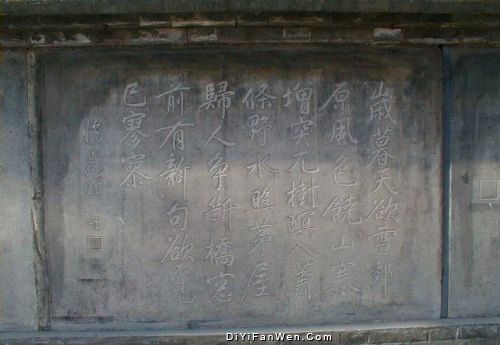 歲暮天欲雪郊
原風色饒山寒
增突兀樹暝入蕭
條野水照茅屋
歸人爭斷橋窓
前有新句欲覓
已寥寥
DiYiFanWen.Com